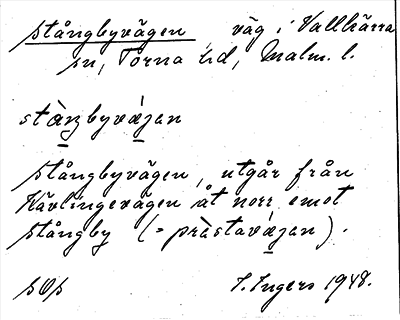 Stångbyvägen, väg i Vallkärra
sn, Torna hd, Malm. l.
stàŋbyvǽjan
Stångbyvägen, utgår från
Kävlingevägen åt norr emot
Stångby (= prästavǽjan).
I. Ingers 1948.